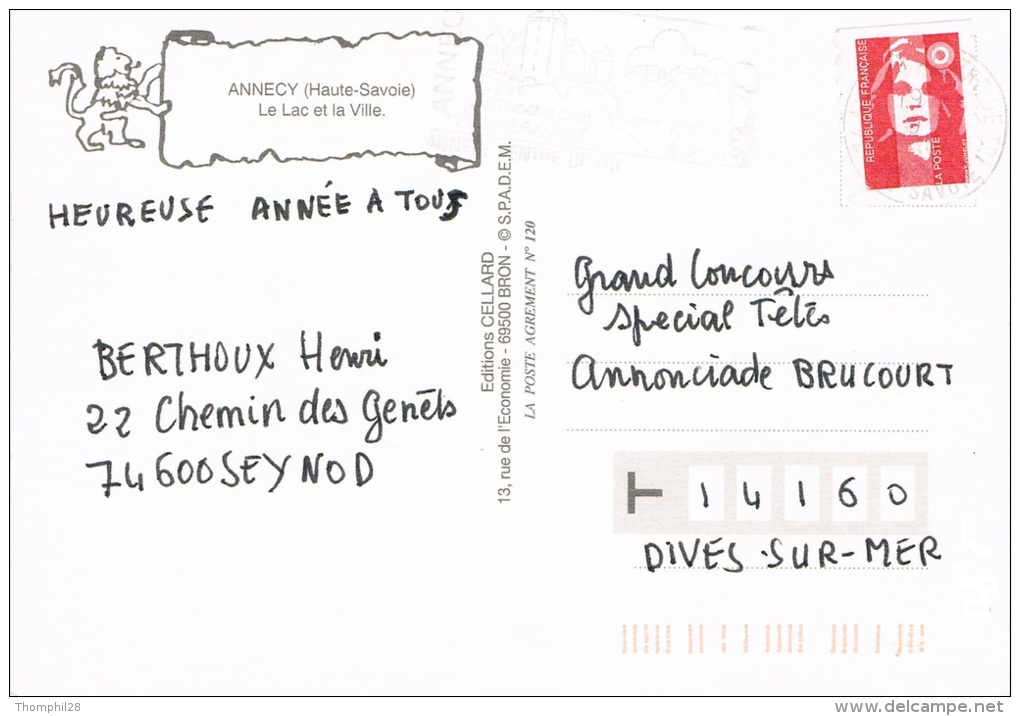 ANNECY (Haute-Savoie)
Le Lac et la Ville.
HEUREUSE ANNÉE A TOUS
BERTHOUX Henri
22 Chemin des Genêts
74600 SEYNOD
Editions CELLARD
13, rue de l'Economie - 69500 BRON - © S.P.A.D.E.M.
LA POSTE AGREMENT N° 120
ANNECY
REPUBLIQUE FRANÇAISE
LA POSTE
Grand Concours
Special Têtes
Annonciade BRUCOURT
14160
DIVES-SUR-MER
Thomphil28
www.delcampe.net